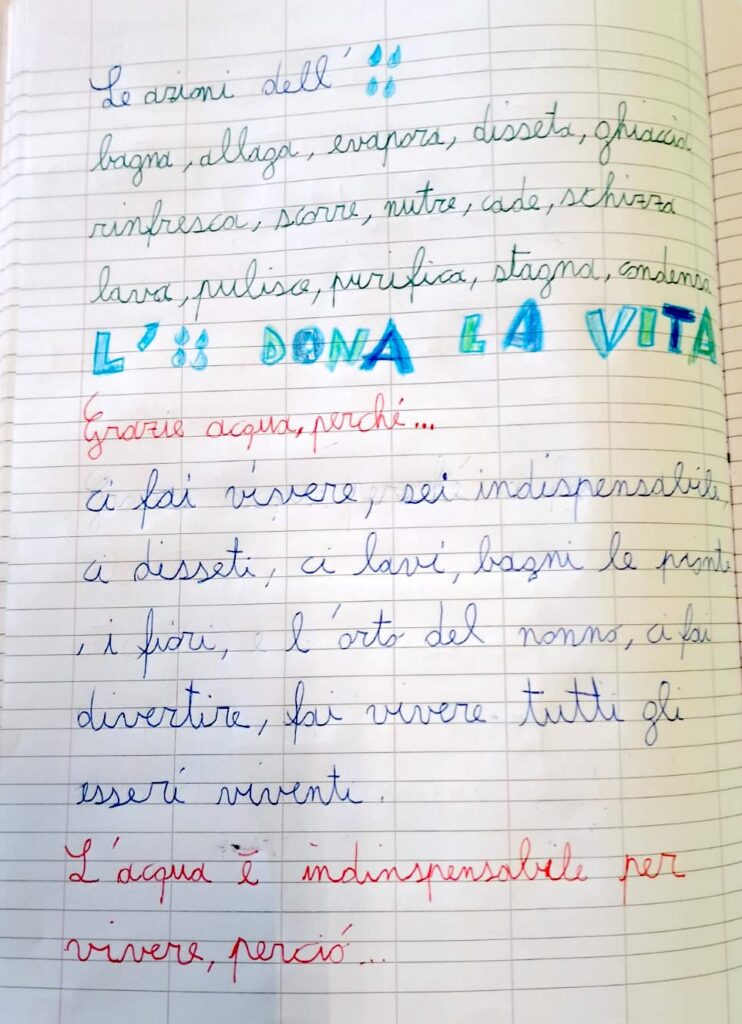 Le azioni dell'
bagna, allaga, evapora, disseta, ghiaccia
rinfresca, scorre, nutre, cade, schizza
lava, pulisce, purifica, stagna, condensa
L' DONA LA VITA
Grazie acqua, perché...
ci fai vivere, sei indispensabile,
ci disseti, ci lavi, bagni le piante
, i fiori, l'orto del nonno, ci fai
divertire, fai vivere tutti gli
esseri viventi.
L'acqua è indinspensabile per
vivere, perció...